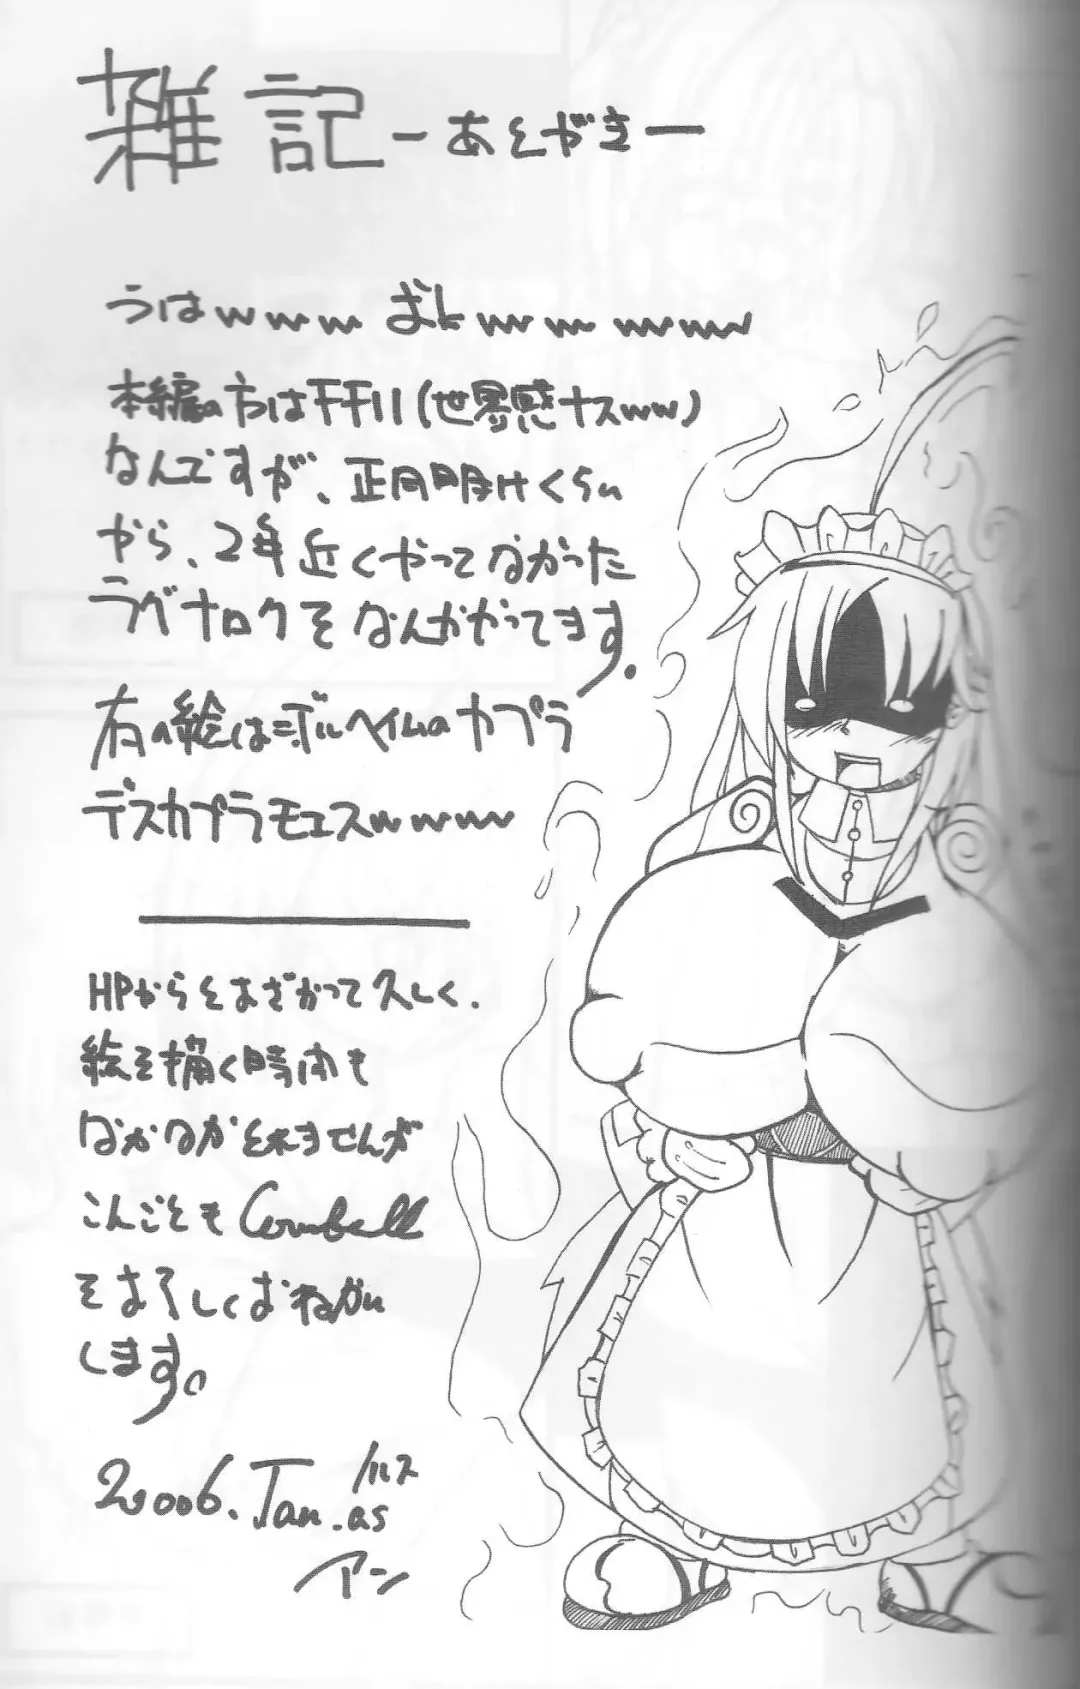 雑記 ーあとがきー
うはwww おkwwwwww
本編の方は干干川(世界感ナスww)
なんですが、正月明けくらい
から、2年近くやってなかった
ラグナロクをなんかやってます。
右の絵はニブルヘイムのカプラ
デスカプラモエスwwww
HPからとおざかって久しく、
絵を描く時間も
なかなかとれませんが
こんごとも
をよろしくおねがい
します。
2006.Jan.as
アン